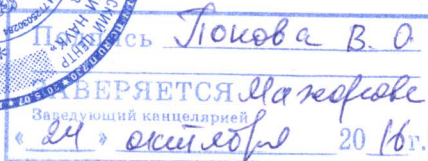 Подпись Попова В. О
ЗАВЕРЯЕТСЯ
Заведующий канцелярией
« 24 » октября 20 16 г.